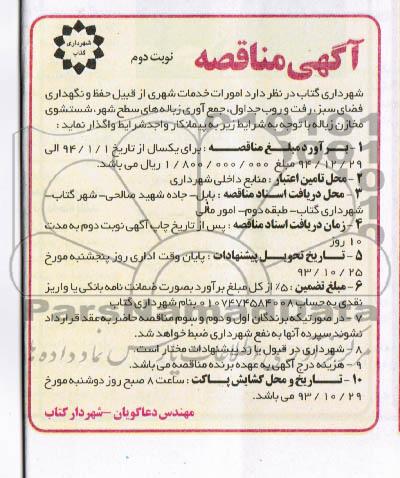 شهرداری
گتاب
آگهی مناقصه
نوبت دوم
شهرداری گتاب در نظر دارد امورات خدمات شهری از قبیل حفظ و نگهداری
فضای سبز، رفت و روب جداول، جمع آوری زباله های سطح شهر، شستشوی
مخازن زباله با توجه به شرایط زیر به پیمانکار واجد شرایط واگذار نماید :
۱- برآورد مبلغ مناقصه : برای یکسال از تاریخ ۹۴/۱/۱ الی
۹۴/۱۲/۲۹ مبلغ ۱/۸۰۰/۰۰۰/۰۰۰ ریال می باشد.
۲- محل تامین اعتبار : منابع داخلی شهرداری
۳- محل دریافت اسناد مناقصه : بابل- جاده شهید صالحی- شهر گتاب-
شهرداری گتاب- طبقه دوم- امور مالی
۴- زمان دریافت اسناد مناقصه : پس از تاریخ چاپ آگهی نوبت دوم به مدت
۱۰ روز
۵- تاریخ تحویل پیشنهادات : پایان وقت اداری روز پنجشنبه مورخ
۹۳/۱۰/۲۵
۶- مبلغ تضمین : ۵٪ از کل مبلغ برآورد بصورت ضمانت نامه بانکی یا واریز
نقدی به حساب ۰۱۰۷۴۷۴۵۸۴۰۰۸ بنام شهرداری گتاب
۷- در صورتیکه برندگان اول و دوم و سوم مناقصه حاضر به عقد قرارداد
نشوند سپرده آنها به نفع شهرداری ضبط خواهد شد.
۸- شهرداری در قبول یا رد پیشنهادات مختار است.
۹- هزینه درج آگهی به عهده برنده مناقصه می باشد.
۱۰- تاریخ و محل گشایش پاکت : ساعت ۸ صبح روز دوشنبه مورخ
۹۳/۱۰/۲۹ می باشد.
مهندس دعاگویان - شهردار گتاب